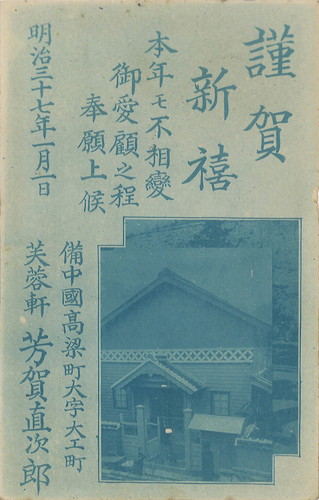 謹賀
新禧
本年モ不相變
御愛顧之程
奉願上候
明治三十七年一月一日
備中國高梁町大字大工町
芙蓉軒 芳賀直次郎